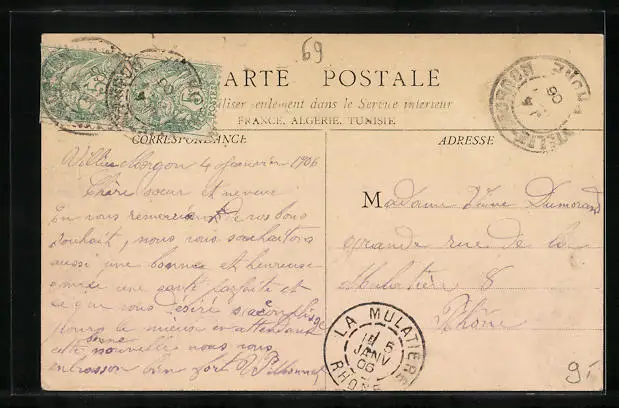 69
CARTE POSTALE
utiliser seulement dans le Service interieur
FRANCE, ALGERIE, TUNISIE
CORRESPONDANCE
Villié Morgon 4 Janvier 1906
Chère soeur et neveux
En vous remerciant de vos bons
souhait, nous vous souhaitons
aussi une bonne et heureuse
année une santé parfaite et
ce que vous désiré s'accomplisse
pour le mieux en attendant
cette bonne nouvelle nous vous
embrasson bien fort
ADRESSE
Madame Vve Dumorand
grande rue de la
Mulatière 8
Rhône
LA MULATIERE
5
JANV
06
RHONE
VILLIE-MORGON RHONE
06
9